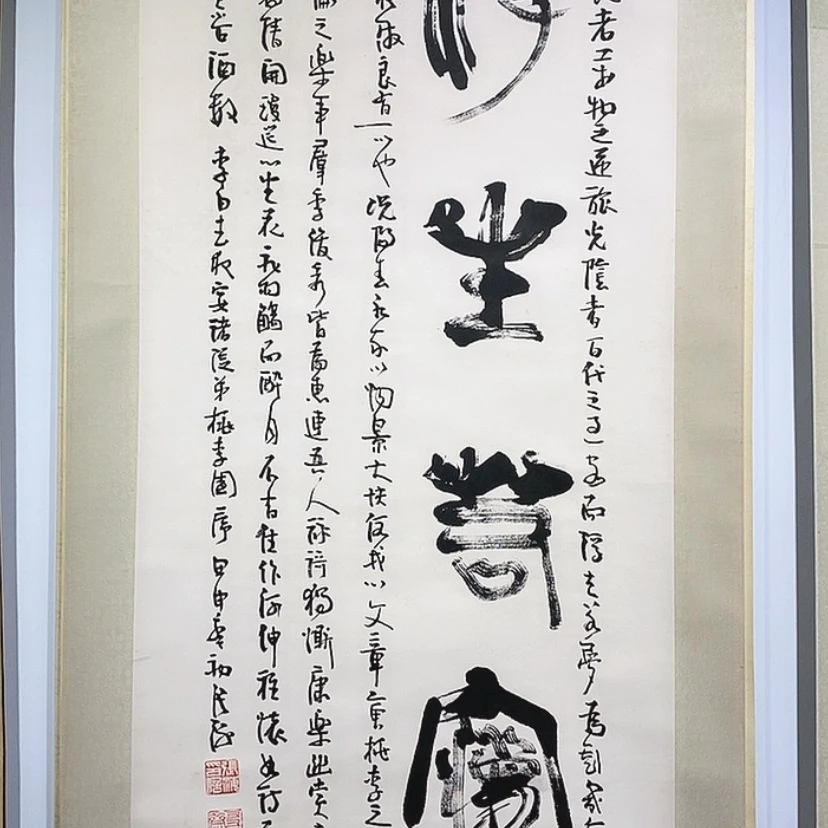 者萬物之逆旅光陰者百代之過客而浮生若夢為歡幾
浮生若夢
遊良有以也況陽春召我以煙景大塊假我以文章會桃李之
倫之樂事羣季俊秀皆為惠連吾人詠歌獨慚康樂幽賞
轉清開瓊筵以坐花飛羽觴而醉月不有佳作何伸雅懷如詩不
谷酒數 李白春夜宴諸從弟桃李園序 甲申春初